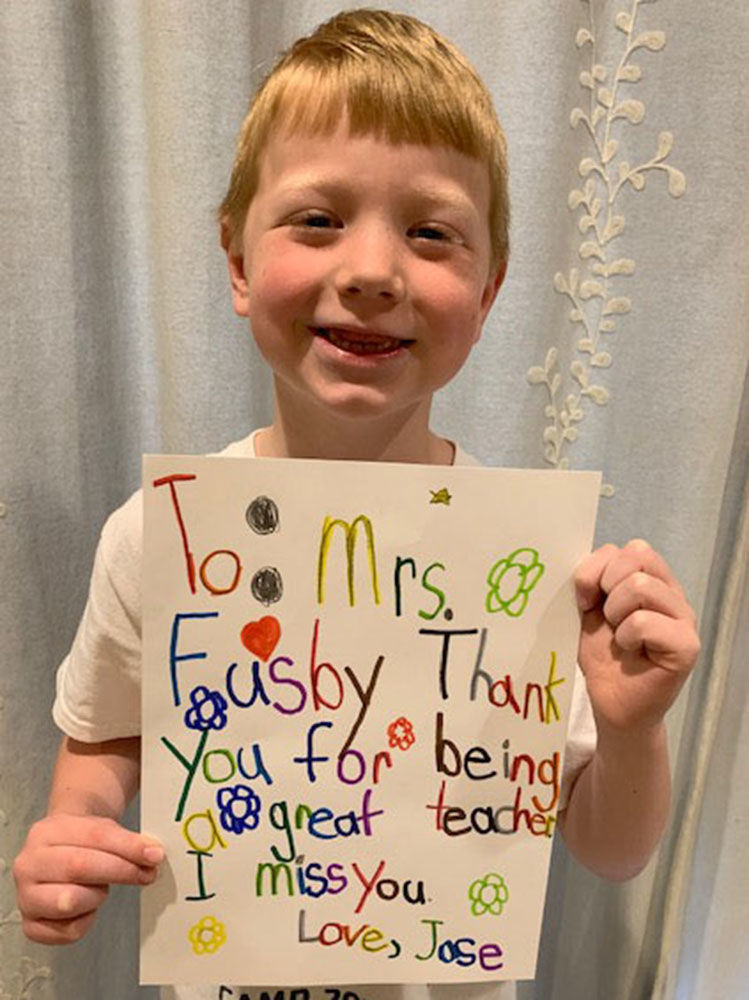 To: Mrs.
Fusby Thank
you for being
a great teacher
I miss you.
Love, Jase
CAMP